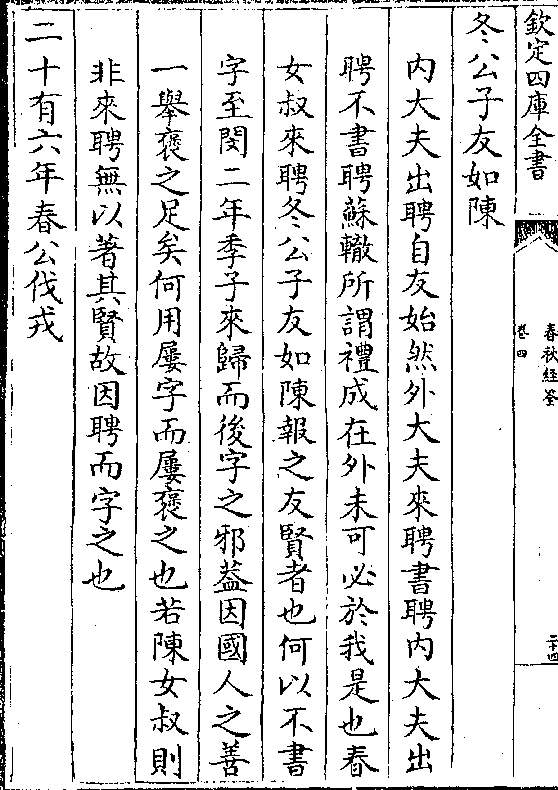 欽定四庫全書
春秋經荃
卷四
二十四
冬公子友如陳
內大夫出聘自友始然外大夫來聘書聘內大夫出
聘不書聘蘇轍所謂禮成在外未可必於我是也春
女叔來聘冬公子友如陳報之友賢者也何以不書
字至閔二年季子來歸而後字之邪葢因國人之善
一舉褒之足矣何用屢字而屢褒之也若陳女叔則
非來聘無以著其賢故因聘而字之也
二十有六年春公伐戎